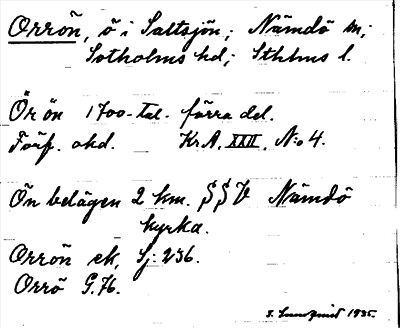 Orrön, ö i Saltsjön; Nämdö sn;
Sotholms hd; Sthlms l.
Örön 1700-tal. förra del.
Förf. okd. KrA. XXII. No 4.
Ön belägen 2 km. SSV Nämdö
kyrka.
Orrön ek, Sj: 236.
Orrö G.76.
1935.